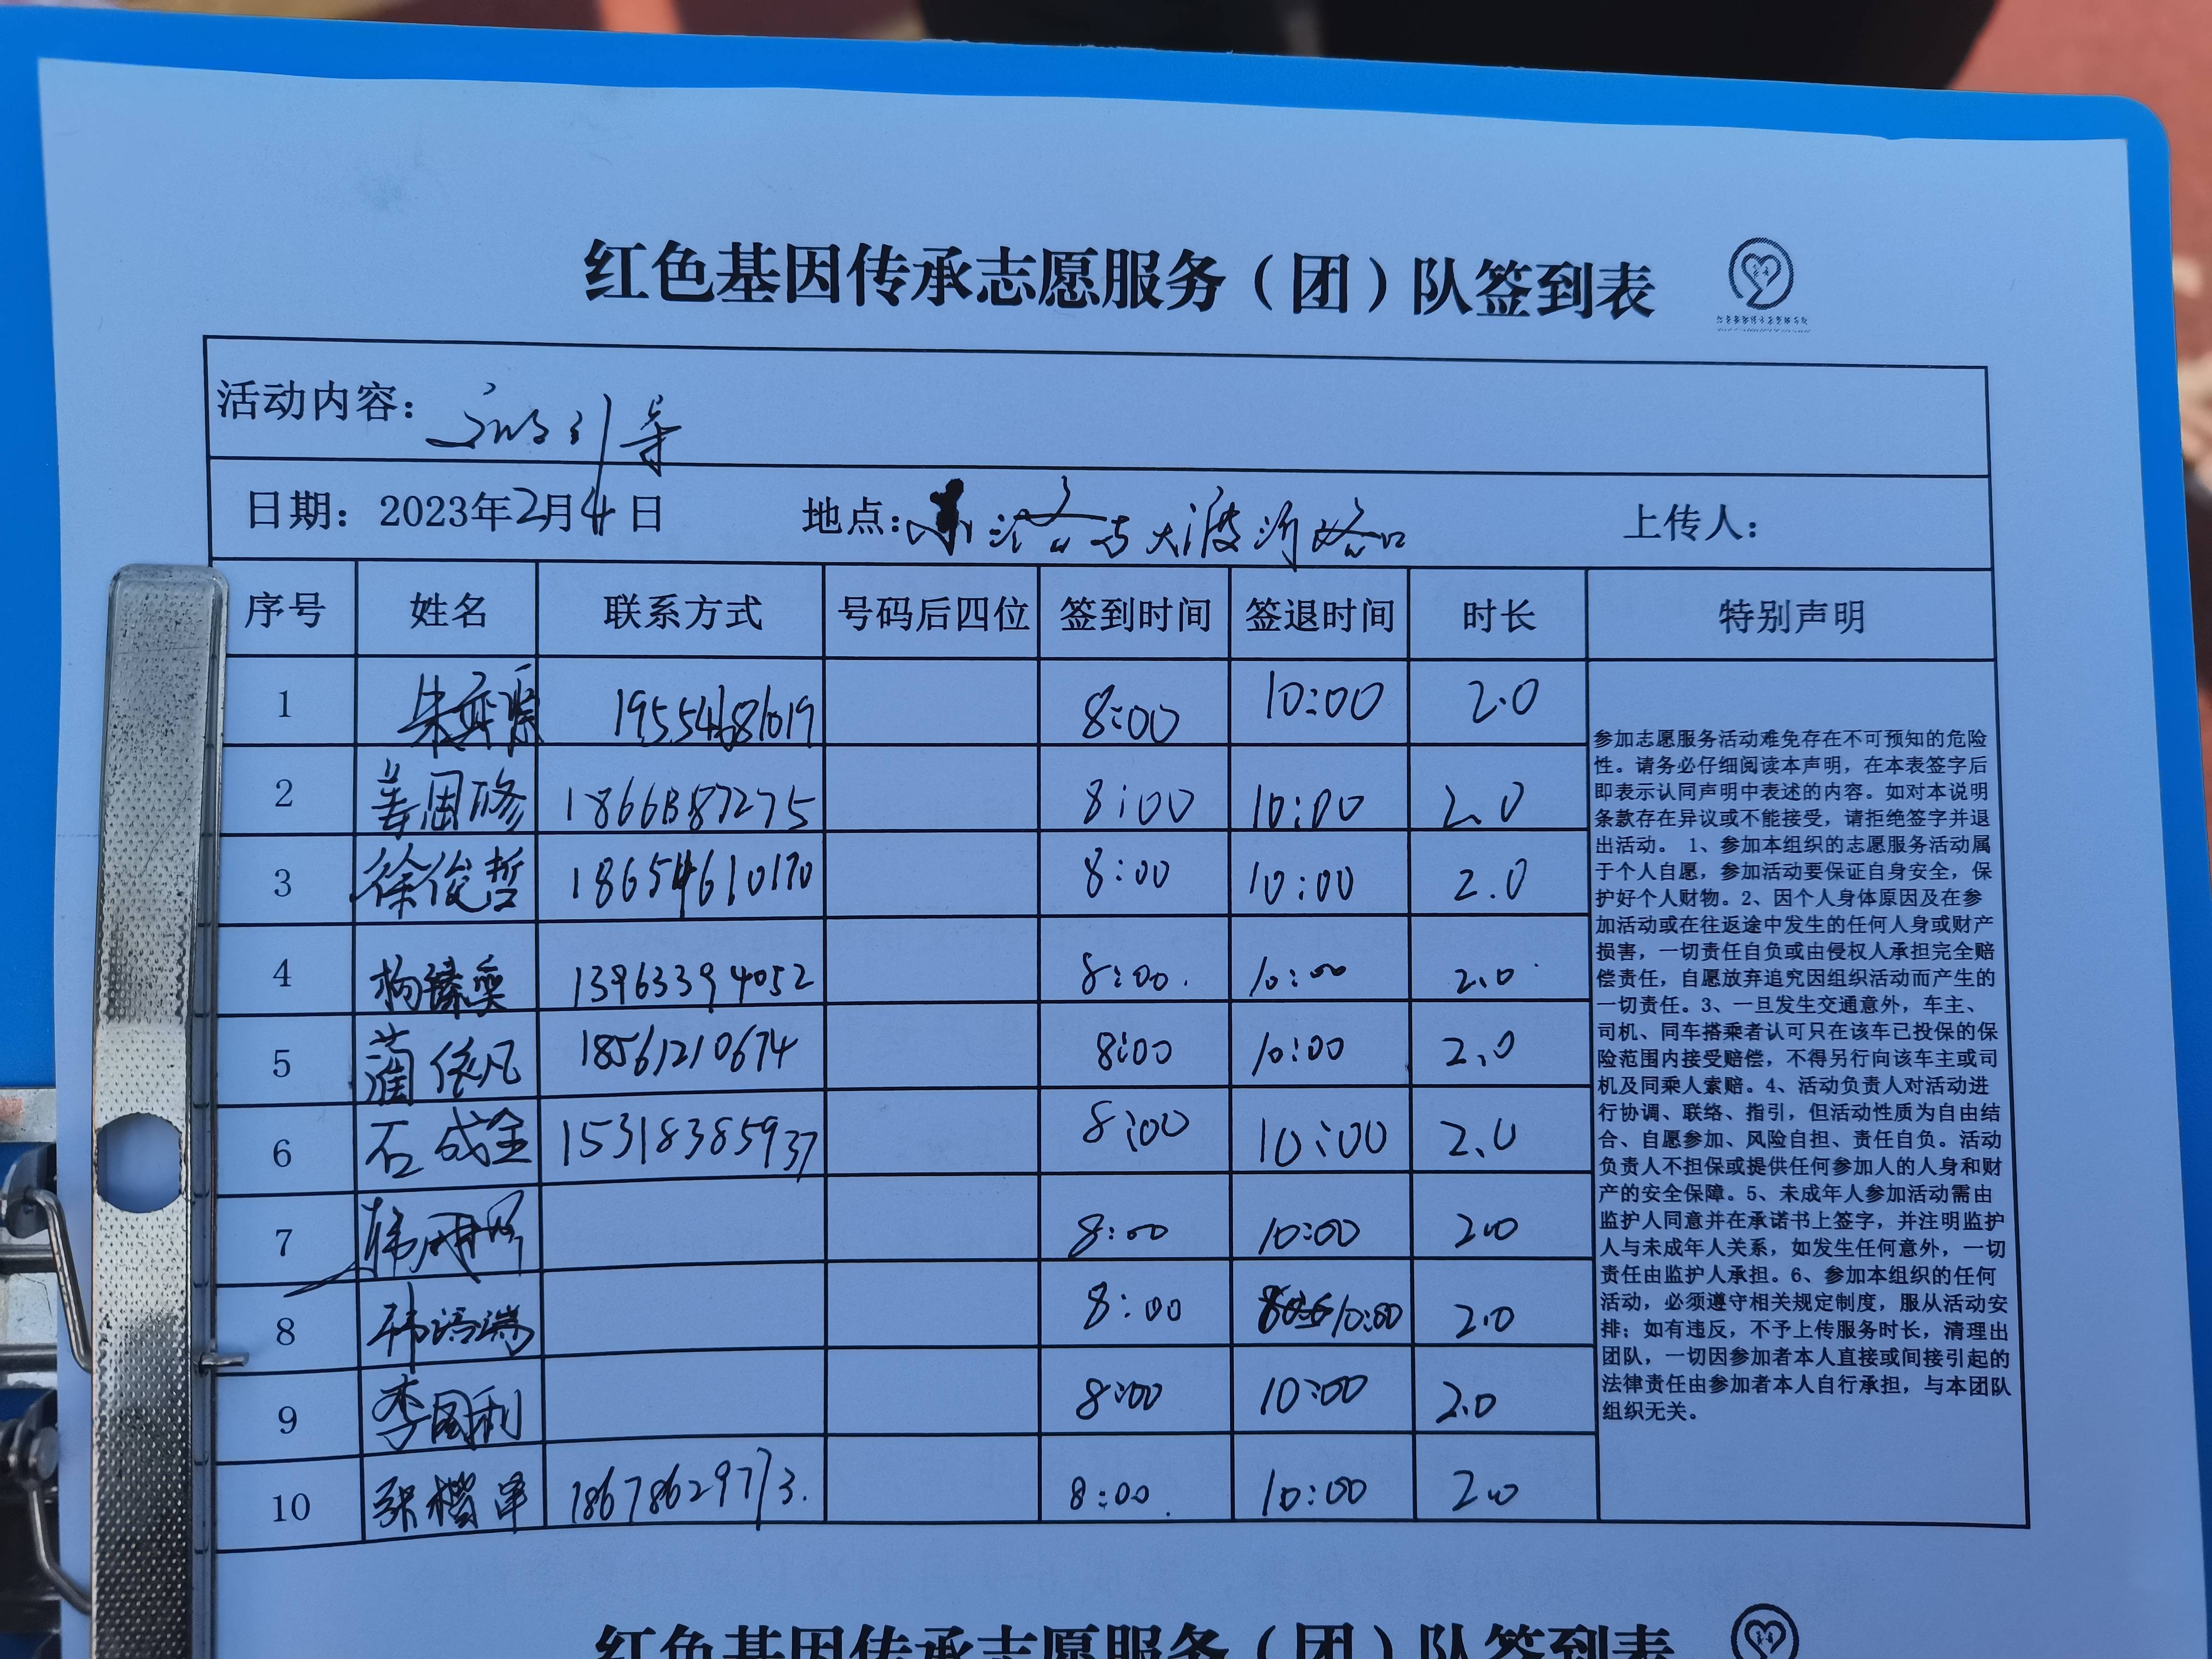 红色基因传承志愿服务（团）队签到表
活动内容：文明引导
日期：2023年2月4日 地点：与大渡河路口 上传人：
序号 姓名 联系方式 号码后四位 签到时间 签退时间 时长 特别声明
1 朱 8:00 10:00 2.0
2 姜周修 8:00 10:00 2.0
3 徐俊哲 18654610170 8:00 10:00 2.0
4 13963394052 8:00 10:00 2.0
5 蔺依凡 18561210674 8:00 10:00 2.0
6 石成金 15318385937 8:00 10:00 2.0
7 韩雨 8:00 10:00 2.0
8 韩语瑞 8:00 10:00 2.0
9 李国利 8:00 10:00 2.0
10 张楷 18678629713. 8:00 10:00 2.0
参加志愿服务活动难免存在不可预知的危险
性。请务必仔细阅读本声明，在本表签字后
即表示认同声明中表述的内容。如对本说明
条款存在异议或不能接受，请拒绝签字并退
出活动。 1、参加本组织的志愿服务活动属
于个人自愿，参加活动要保证自身安全，保
护好个人财物。2、因个人身体原因及在参
加活动或在往返途中发生的任何人身或财产
损害，一切责任自负或由侵权人承担完全赔
偿责任，自愿放弃追究因组织活动而产生的
一切责任。3、一旦发生交通意外，车主、
司机、同车搭乘者认可只在该车已投保的保
险范围内接受赔偿，不得另行向该车主或司
机及同乘人索赔。4、活动负责人对活动进
行协调、联络、指引，但活动性质为自由结
合、自愿参加、风险自担、责任自负。活动
负责人不担保或提供任何参加人的人身和财
产的安全保障。5、未成年人参加活动需由
监护人同意并在承诺书上签字，并注明监护
人与未成年人关系，如发生任何意外，一切
责任由监护人承担。6、参加本组织的任何
活动，必须遵守相关规定制度，服从活动安
排；如有违反，不予上传服务时长，清理出
团队，一切因参加者本人直接或间接引起的
法律责任由参加者本人自行承担，与本团队
组织无关。
红色基因传承志愿服务（团）队签到表